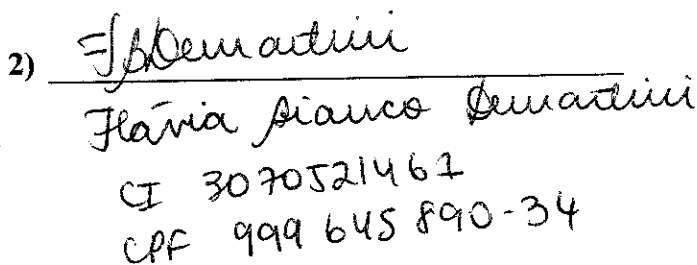 2) FBDemartini
Flávia Bianco Demartini
CI 3070521461
CPF 999 645 890-34